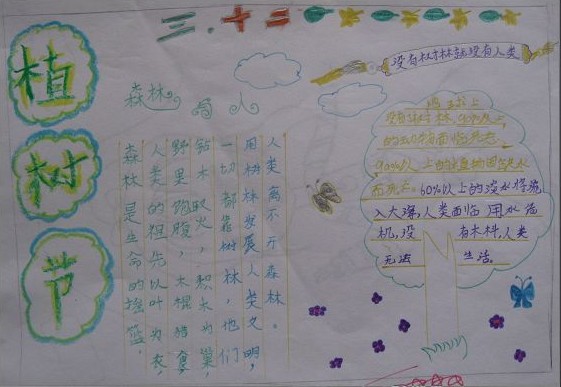 植树节
三.十二
没有树林就没有人类
森林与人
森林是生命的摇篮，
人类的祖先以叶为衣，
野果饱腹，木棍猎食，
钻木取火，积木为巢，
一切都靠树林，他们
用树林发展人类文明，
人类离不开森林。
地球上
没有树林，90%以上
的动物面临死亡。
90%以上的
而死亡。60%以上的淡水将流
入大海，人类面临用水危
机，没有木料，人类
无法生活。